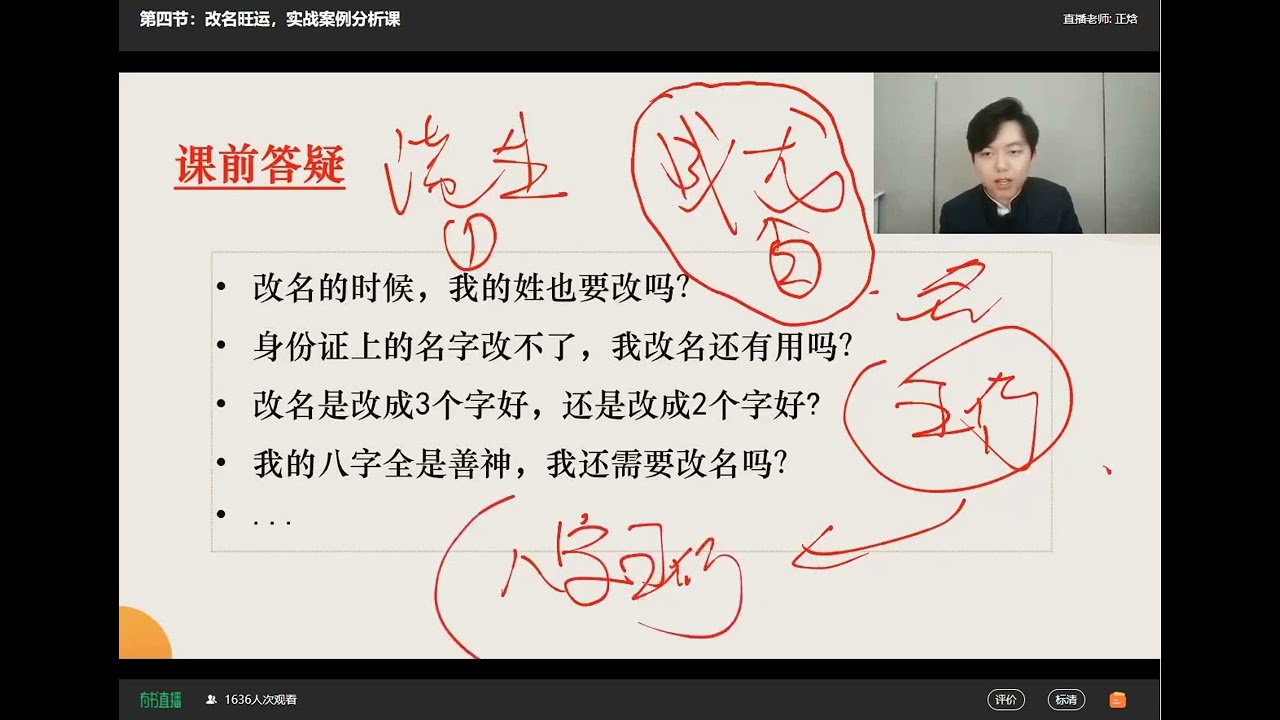 第四节：改名旺运，实战案例分析课
直播老师: 正焓
课前答疑
①
②
改名的时候，我的姓也要改吗？
名
身份证上的名字改不了，我改名还有用吗？
改名是改成3个字好，还是改成2个字好?
我的八字全是善神，我还需要改名吗？
...
八字
有书直播
1636人次观看
评价
标清